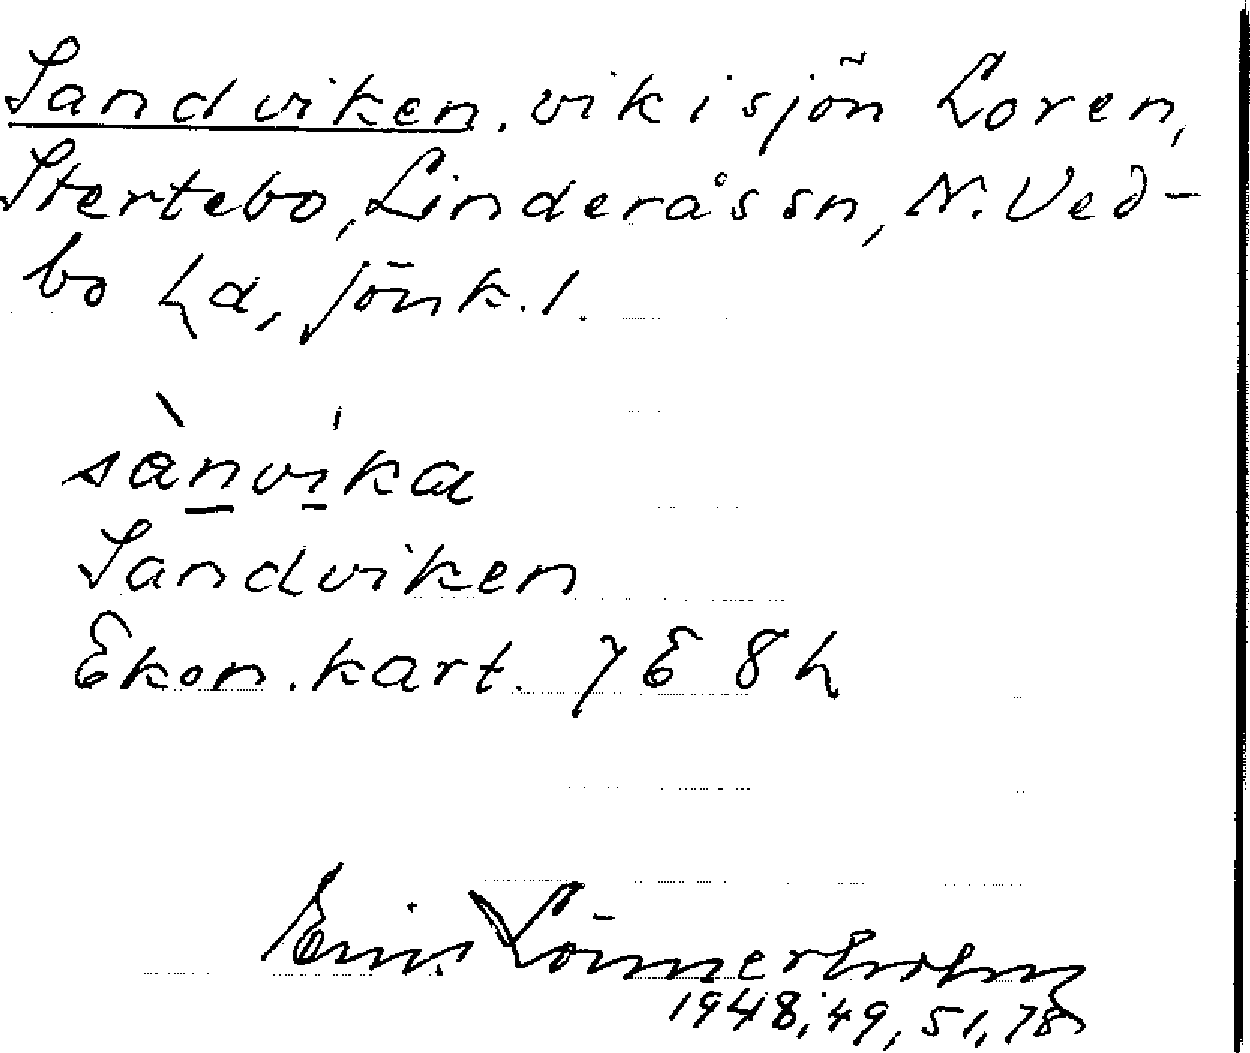 Sandviken, vik i sjön Loren,
Stertebo, Linderås sn, N. Ved-
bo hd, Jönk. l.
sànvíka
Sandviken
Ekon. kart. 7 E 8 h
Lönnerholm
1948, 49, 51, 78